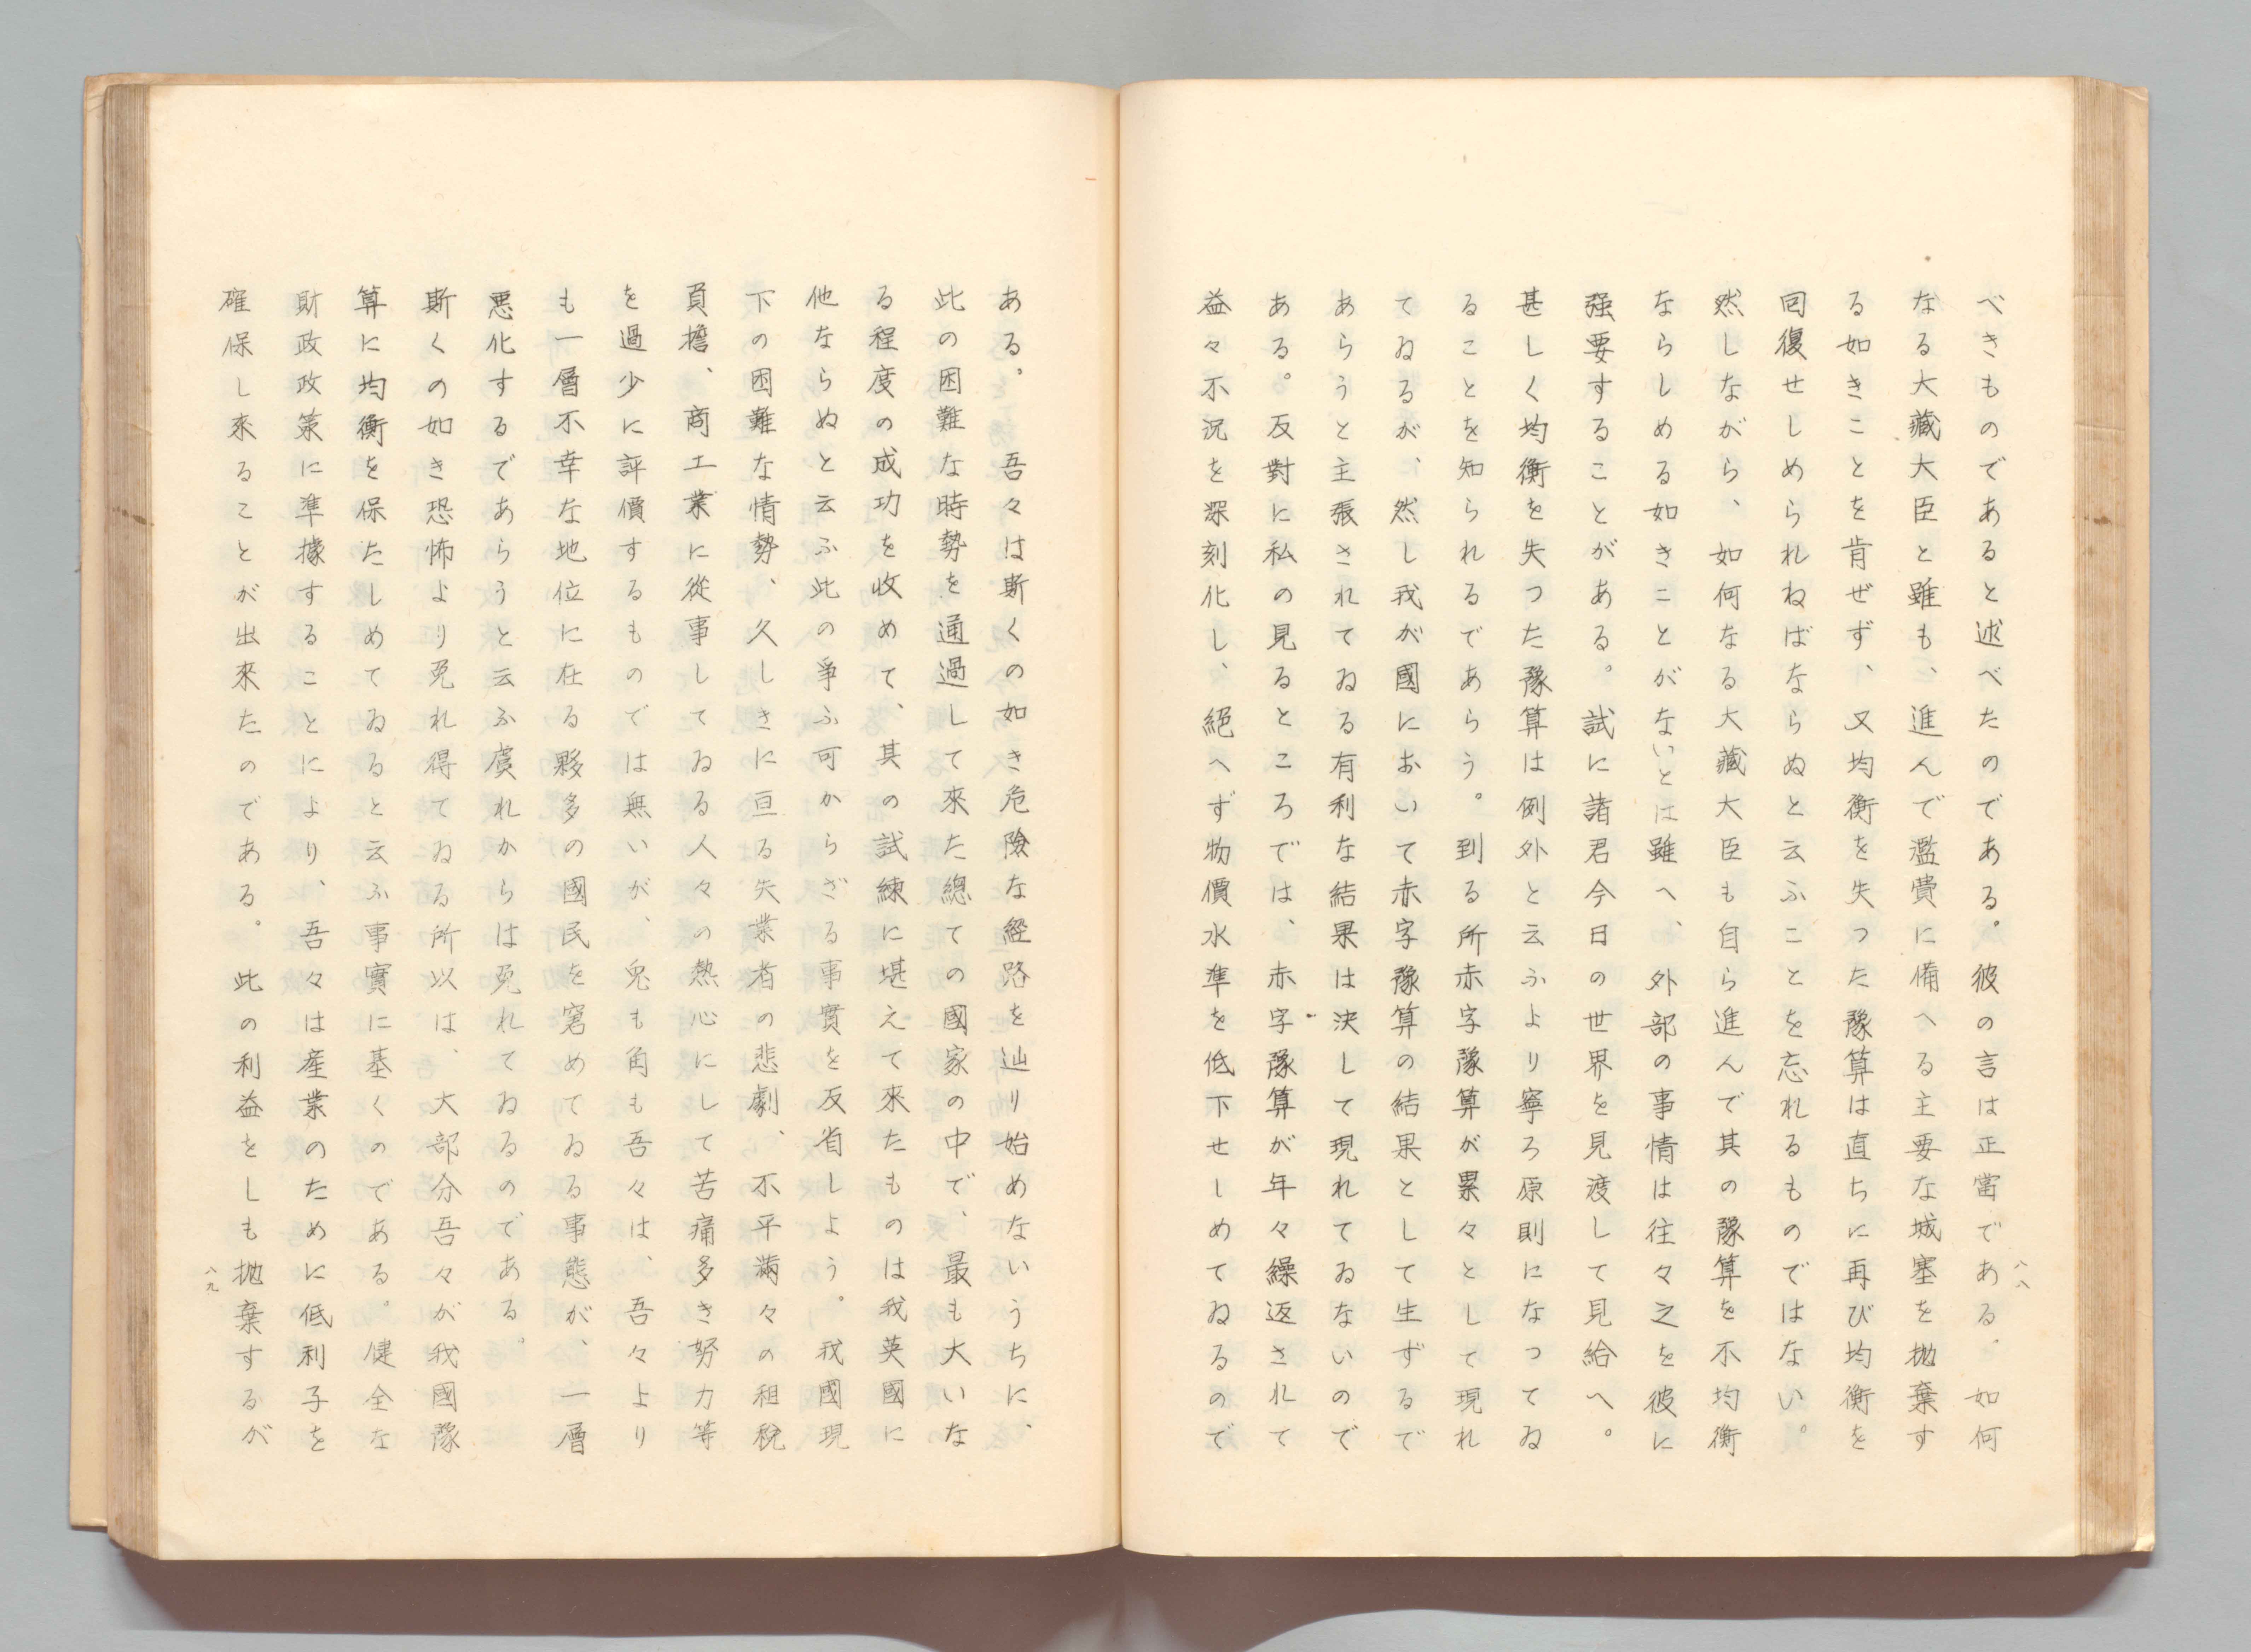 べきものであると述べたのである。彼の言は正當である。如何
なる大藏大臣と雖も、進んで濫費に備へる主要な城塞を抛棄す
る如きことを肯ぜず、又均衡を失つた豫算は直ちに再び均衡を
回復せしめられねばならぬと云ふことを忘れるものではない。
然しながら、如何なる大藏大臣も自ら進んで其の豫算を不均衡
ならしめる如きことがないとは雖へ、外部の事情は往々之を彼に
强要することがある。試に諸君今日の世界を見渡して見給へ。
甚しく均衡を失つた豫算は例外と云ふより寧ろ原則になつてゐ
ることを知られるであらう。到る所赤字豫算が累々として現れ
てゐるが、然し我が國において赤字豫算の結果として生ずるで
あらうと主張されてゐる有利な結果は決して現れてゐないので
ある。反對に私の見るところでは、赤字豫算が年々繰返されて
益々不況を深刻化し、絕へず物價水準を低下せしめてゐるので
八八
ある。吾々は斯くの如き危險な経路を辿り始めないうちに、
此の困難な時勢を通過して來た總ての國家の中で、最も大いな
る程度の成功を收めて、其の試練に堪えて來たものは我英國に
他ならぬと云ふ此の爭ふ可からざる事實を反省しよう。我國現
下の困難な情勢、久しきに亘る失業者の悲劇、不平滿々の租稅
負擔、商工業に從事してゐる人々の熱心にして苦痛多き努力等
を過少に評價するものでは無いが、兎も角も吾々は、吾々より
も一層不幸な地位に在る夥多の國民を窘めてゐる事態が、一層
悪化するであらうと云ふ虞れからは免れてゐるのである。
斯くの如き恐怖より免れ得てゐる所以は、大部分吾々が我國豫
算に均衡を保たしめてゐると云ふ事實に基くのである。健全な
財政政策に準據することにより、吾々は産業のために低利子を
確保し來ることが出來たのである。此の利益をしも抛棄するが
八九